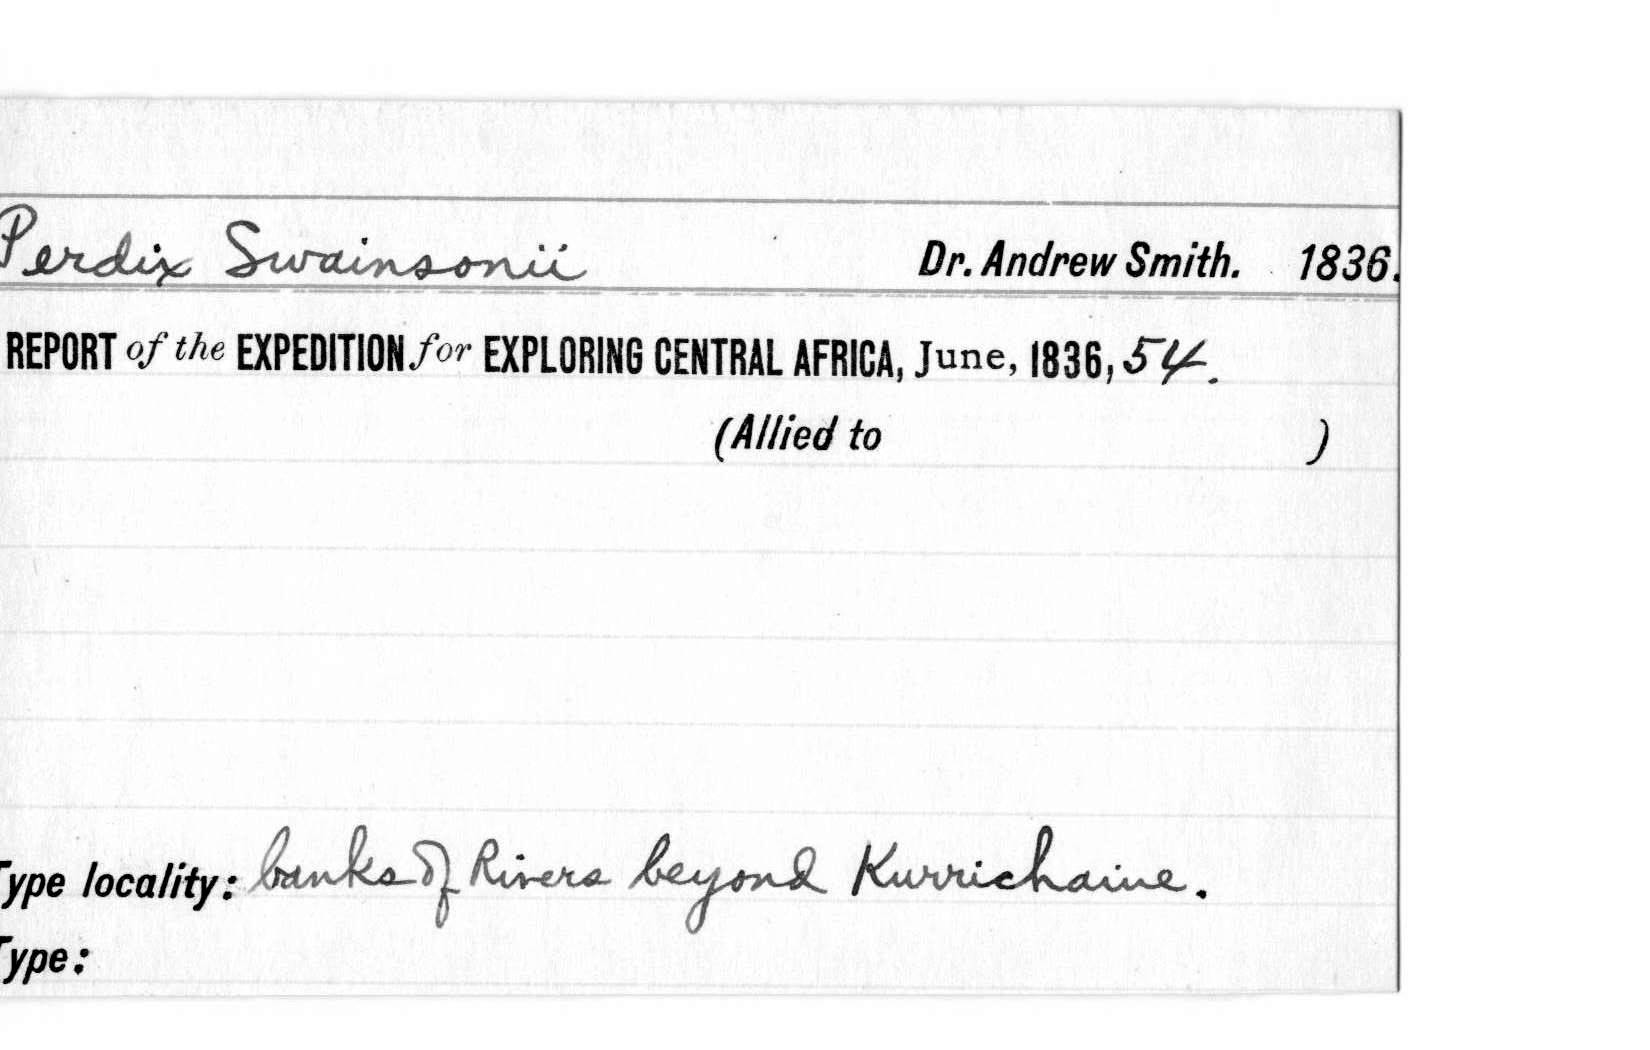 Perdix Swainsonii Dr. Andrew Smith. 1836.
REPORT of the EXPEDITION for EXPLORING CENTRAL AFRICA, June, 1836, 54.
(Allied to )
Type locality: banks of Rivers beyond Kurrichaine.
Type: